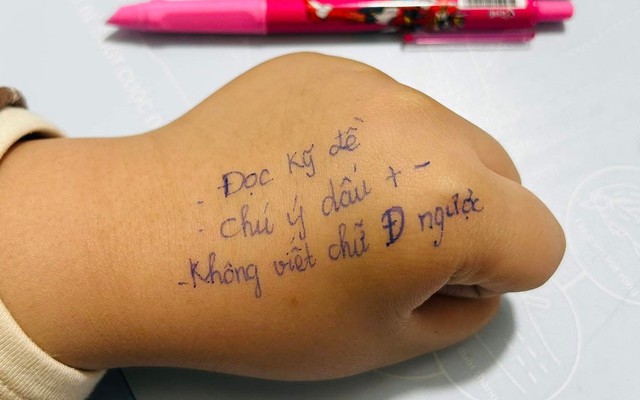 - Đọc kỹ đề
- chú ý dấu + -
- Không viết chữ Đ ngược